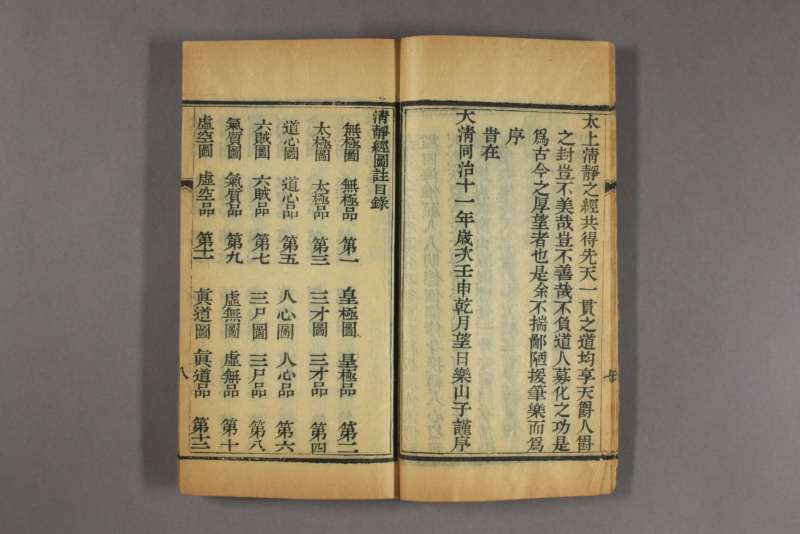 太上清靜之經共得先天一貫之道均享天爵人爵
之封豈不美哉豈不善哉不負道人募化之功是
爲古今之厚望者也是余不揣鄙陋援筆樂而爲
序
旹在
大清同治十一年歲次壬申乾月望日樂山子謹序
清靜經圖註目錄
無極圖 無極品 第一 皇極圖 皇極品 第二
太極圖 太極品 第三 三才圖 三才品 第四
道心圖 道心品 第五 人心圖 人心品 第六
六賊圖 六賊品 第七 三尸圖 三尸品 第八
氣質圖 氣質品 第九 虛無圖 虛無品 第十
虛空圖 虛空品 第十一 眞道圖 眞道品 第十二
八